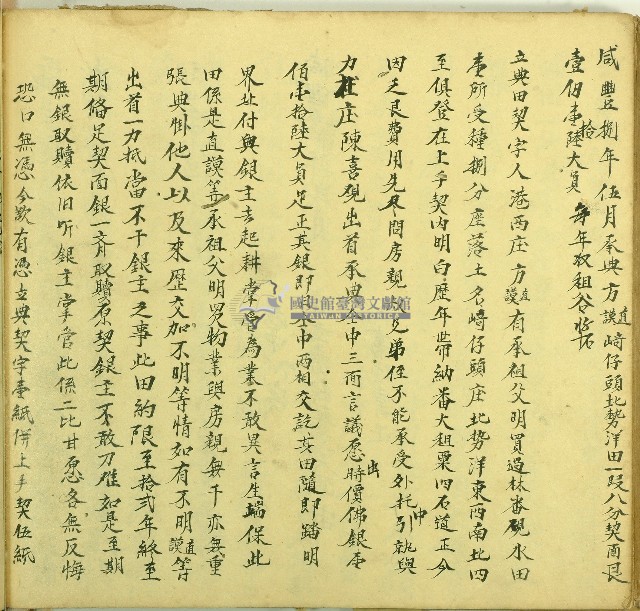 咸豐捌年伍月承典方直謨崎仔頭北勢洋田一段八分契面艮
壹佰壹拾陸大員 每年收租谷
立典田契字人港西庄方直謨有承祖父明買過林番觀水田
壹所受種捌分座落土名崎仔頭庄北勢洋東西南北四
至俱登在上手契內明白歷年帶納番大租粟四石道正今
因乏艮費用先尽問房親叔兄弟侄不能承受外托中引就與
力社庄陳喜觀出首承典全中三面言議愿出時價佛銀壹
佰壹拾陸大員足正其銀即全中兩相交訖其田隨即踏明
界址付與銀主去起耕掌管為業不敢異言生端保此
田係是直謨等承祖父明買物業與房親無干亦無重
張典掛他人以及來歷交加不明等情如有不明直謨等
出首一力抵當不干銀主之事此田約限至拾弍年終至
期備足契面銀一齊取贖原契銀主不敢刁难如是至期
無銀取贖依旧听銀主掌管此係二比甘愿各無反悔
恐口無憑今欲有憑立典契字壹紙併上手契伍紙
國史館臺灣文獻館
TAIWAN HISTORICA